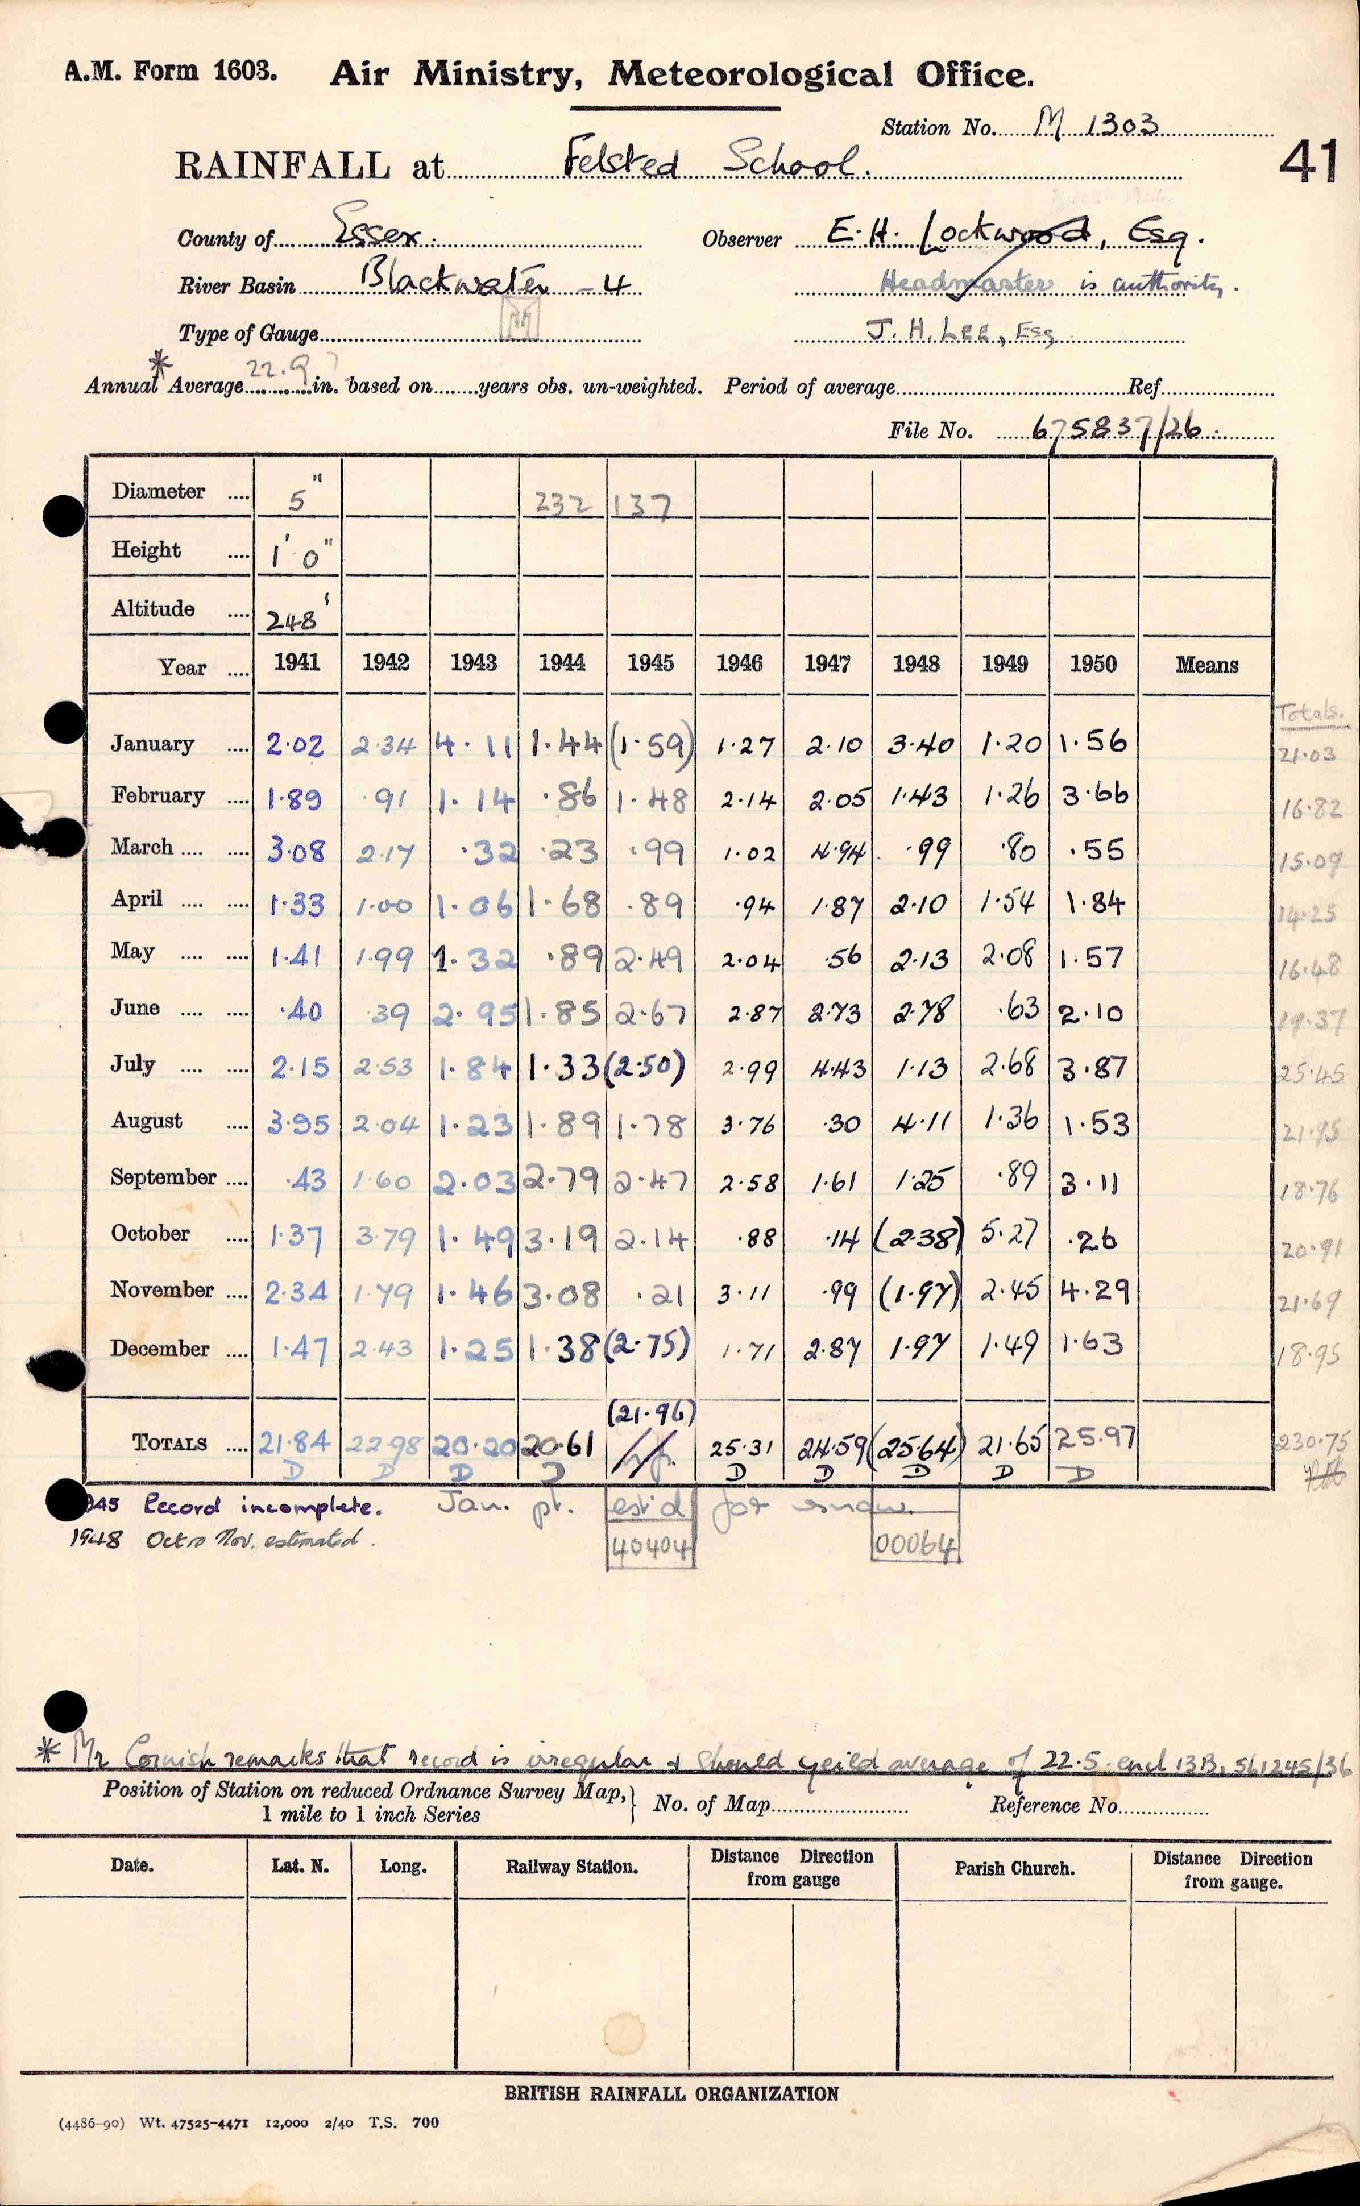 A.M. Form 1603. Air Ministry, Meteorological Office.
Station No. M 1303
41
RAINFALL at Felsted School.
County of Essex. Observer E. H. Lockwood, Esq.
River Basin Blackwater - 4 Headmaster is authority.
Type of Gauge J. H. LEE, Esq
* Annual Average 22.9 in. based on years obs. un-weighted. Period of average Ref.
File No. 675837/26.
Diameter .... 5" 232 137
Height .... 1' 0"
Altitude .... 248'
Year .... 1941 1942 1943 1944 1945 1946 1947 1948 1949 1950 Means
Totals.
January .... 2.02 2.34 4.11 1.44 (1.59) 1.27 2.10 3.40 1.20 1.56 21.03
February .... 1.89 .91 1.14 .86 1.48 2.14 2.05 1.43 1.26 3.66 16.82
March .... .... 3.08 2.17 .32 .23 .99 1.02 4.94 .99 .80 .55 15.09
April .... .... 1.33 1.00 1.06 1.68 .89 .94 1.87 2.10 1.54 1.84 14.25
May .... .... 1.41 1.99 1.32 .89 2.49 2.04 .56 2.13 2.08 1.57 16.48
June .... .... .40 .39 2.95 1.85 2.67 2.87 2.73 2.78 .63 2.10 19.37
July .... .... 2.15 2.53 1.84 1.33 (2.50) 2.99 4.43 1.13 2.68 3.87 25.45
August .... 3.95 2.04 1.23 1.89 1.78 3.76 .30 4.11 1.36 1.53 21.95
September .... .43 1.60 2.03 2.79 2.47 2.58 1.61 1.25 .89 3.11 18.76
October .... 1.37 3.79 1.49 3.19 2.14 .88 .14 (2.38) 5.27 .26 20.91
November .... 2.34 1.79 1.46 3.08 .21 3.11 .99 (1.97) 2.45 4.29 21.69
December .... 1.47 2.43 1.25 1.38 (2.75) 1.71 2.87 1.97 1.49 1.63 18.95
(21.96)
TOTALS .... 21.84 22.98 20.20 20.61 25.31 24.59 (25.64) 21.65 25.97 230.75
D D D D D D D D D
945 Record incomplete. Jan. pt. est'd for snow.
1948 Oct & Nov. estimated. 40404 00064
* Mr Cornish remarks that record is irregular & should yeild average of 22.5. encl 13B, 561245/36
Position of Station on reduced Ordnance Survey Map, 1 mile to 1 inch Series } No. of Map Reference No.
Date. Lat. N. Long. Railway Station. Distance Direction from gauge Parish Church. Distance Direction from gauge.
BRITISH RAINFALL ORGANIZATION
(4486-90) Wt. 47525-4471 12,000 2/40 T.S. 700